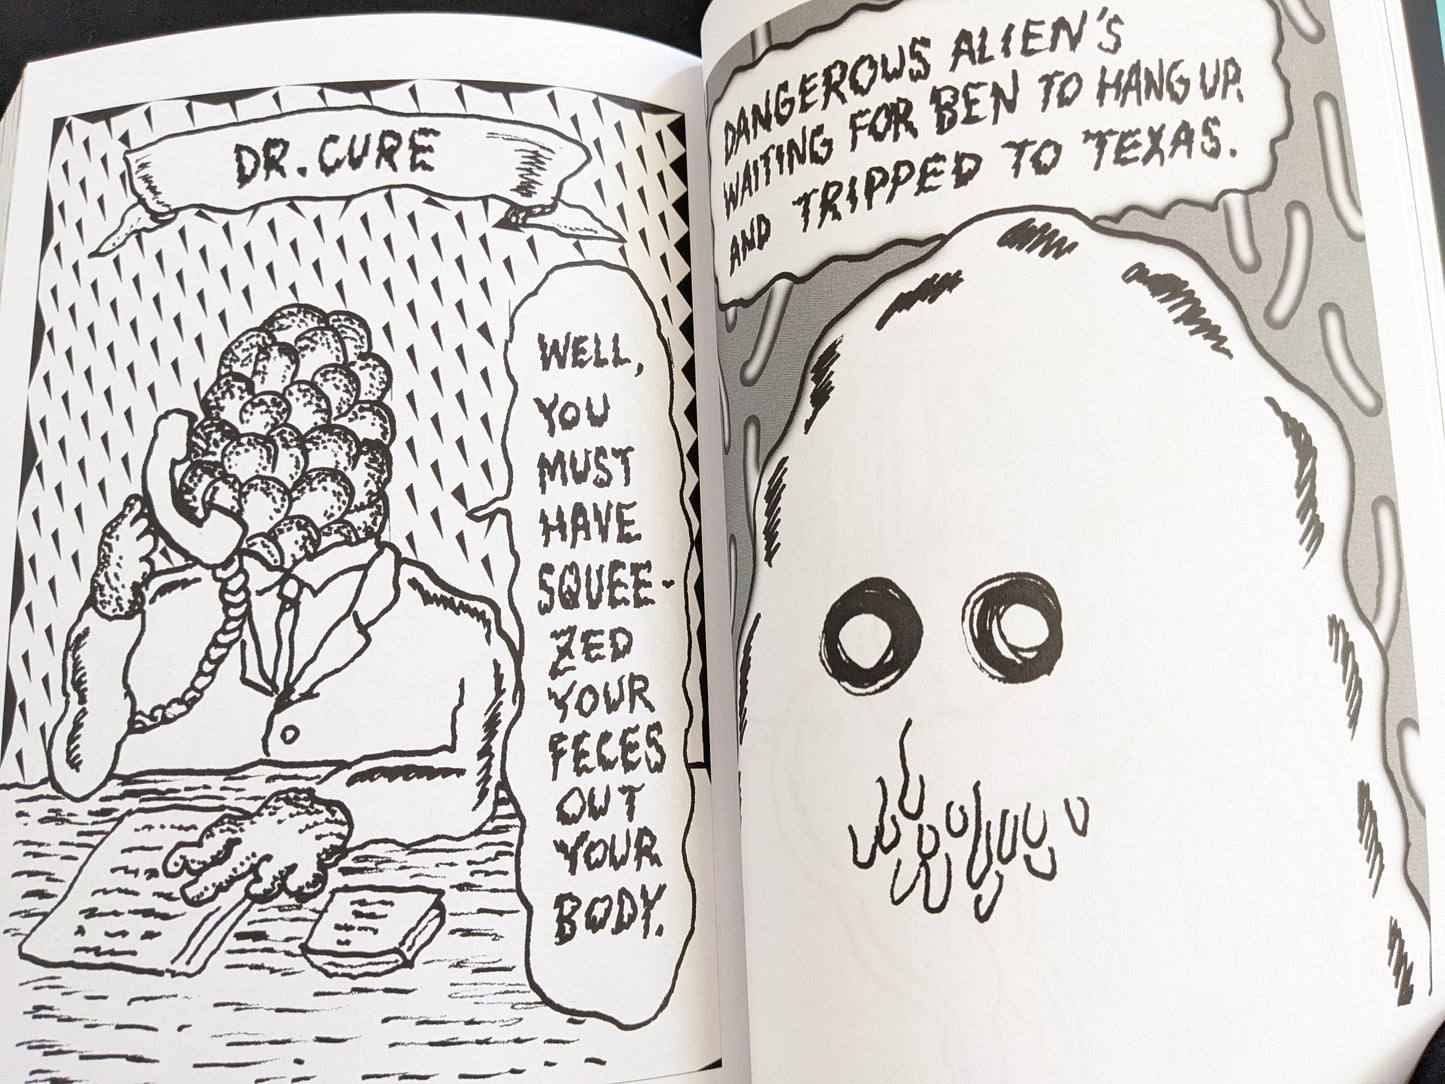 DR. CURE
WELL,
YOU
MUST
HAVE
SQUEE-
ZED
YOUR
FECES
OUT
YOUR
BODY.
DANGEROUS ALIEN'S
WAITING FOR BEN TO HANG UP.
AND TRIPPED TO TEXAS.